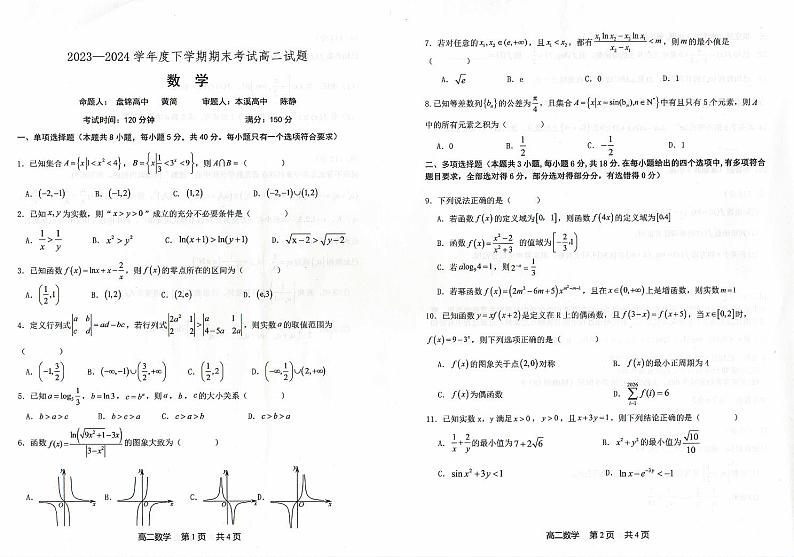 2023—2024 学年度下学期期末考试高二试题
数 学
命题人： 盘锦高中 黄简 审题人：本溪高中 陈静
考试时间：120分钟 满分：150分
一、单项选择题（本题共8小题，每小题5分，共40分。每小题只有一个选项符合要求）
1．已知集合 A={x|1<x²<4}，B={x|1/3<3ˣ<9}，则 A∩B=（ ）
A．(-2,-1) B．(-1,2) C．(1,2) D．(-2,-1)∪(1,2)
2．已知 x,y 为实数，则“x>y>0”成立的充分不必要条件是（ ）
A．1/x>1/y B．x²>y² C．ln(x+1)>ln(y+1) D．√(x-2)>√(y-2)
3．已知函数 f(x)=lnx+x-2/x，则 f(x) 的零点所在的区间为（ ）
A．(1/2,1) B．(1,2) C．(2,e) D．(e,3)
4．定义行列式 |a b; c d|=ad-bc，若行列式 |2a² 1; 2 2|>|a 1; 4-5a 2a|，则实数 a 的取值范围为
（ ）
A．(-1,3/2) B．(-∞,-1)∪(3/2,+∞) C．(1/2,2) D．(-∞,1/2)∪(2,+∞)
5．已知 a=log₃1/3，b=ln3，c=bᵃ，则 a，b，c 的大小关系（ ）
A．b>a>c B．b>c>a C．c>a>b D．c>b>a
6．函数 f(x)=ln(√(9x²+1)-3x)/|3-x²| 的图象大致为（ ）
A． B． C． D．
高二数学 第1页 共4页
7．若对任意的 x₁,x₂∈(e,+∞)，且 x₁<x₂，都有 (x₁lnx₂-x₂lnx₁)/(x₂-x₁)<m，则 m 的最小值是
（ ）
A．√e B．e C．0 D．1
8．已知等差数列{bₙ}的公差为 π/4，且集合 A={x|x=sin(bₙ),n∈N*} 中有且只有5个元素，则 A
中的所有元素之积为（ ）
A．0 B．1/2 C．-1/2 D．1
二、多项选择题（本题共3小题，每小题6分，共18分．在每小题给出的四个选项中，有多项符合
题目要求，全部选对得6分，部分选对得部分分，有选错得0分）
9．下列说法正确的是（ ）
A．若函数 f(x) 的定义域为[0，1]，则函数 f(4x) 的定义域为[0,4]
B．函数 f(x)=(x²-2)/(x²+3) 的值域为 [-2/3,1)
C．若 alog₃4=1，则 2⁻ᵃ=1/3
D．若幂函数 f(x)=(2m²-6m+5)x^(m²-m-1)，且在 x∈(0,+∞) 上是增函数，则实数 m=1
10．已知函数 y=xf(x+2) 是定义在R上的偶函数，且 f(3-x)=f(x+5)，当 x∈[0,2] 时，
f(x)=9-3ˣ，则下列选项正确的是（ ）
A．f(x) 的图象关于点(2,0)对称 B．f(x) 的最小正周期为4
C．f(x)为偶函数 D．∑(i=1→2026) f(i)=6
11．已知实数 x，y 满足 x>0，y>0，且 x+3y=1，则下列结论正确的是（ ）
A．1/x+2/y 的最小值为 7+2√6 B．x²+y² 的最小值为 √10/10
C．sinx²+3y<1 D．lnx-e⁻³ʸ<-1
高二数学 第2页 共4页